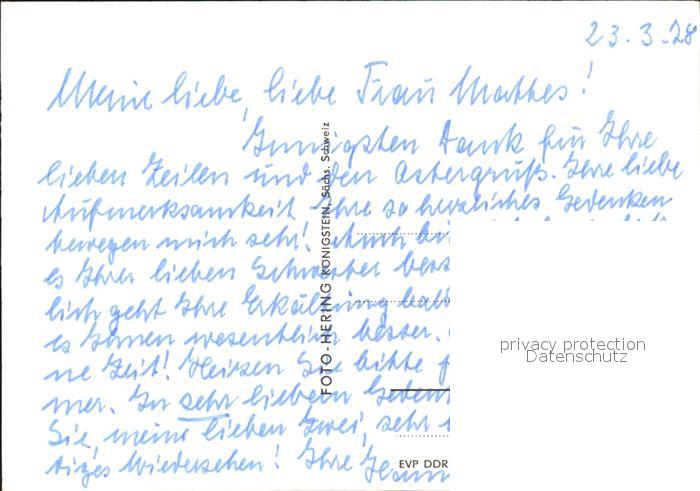 23.3.78
Meine liebe, liebe Frau Matthes!
Innigsten Dank für Ihre
lieben Zeilen und den Ostergruß. Ihre liebe
Aufmerksamkeit Ihre so herzliches Gedenken
bewegen mich sehr! Auch
es Ihrer lieben Schwester bess
lich geht Ihre Erkältung
es Ihnen wesentlich besser.
ne Zeit! Heizen Sie bitte
mer. In sehr liebem Geden
Sie, meine lieben Zwei, sehr
tiges Wiedersehen! Ihre
FOTO-HERING KÖNIGSTEIN, Sächs. Schweiz
EVP DDR
privacy protection
Datenschutz